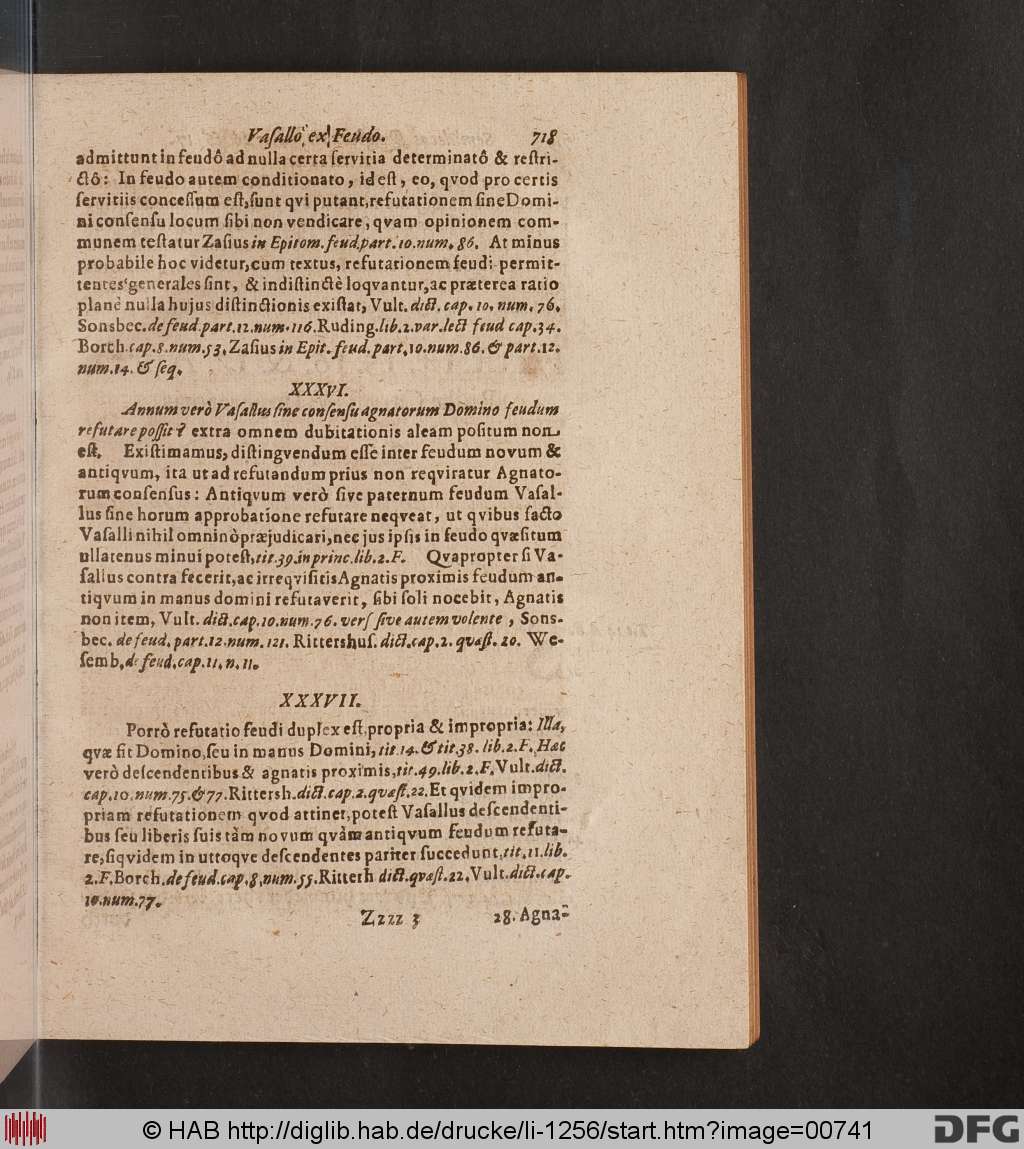 Vaſallo ex Feudo. 718
admittunt in feudô ad nulla certa ſervitia determinatô & reſtri-
ctô: In feudo autem conditionato, id eſt, eo, qvod pro certis
ſervitiis conceſſum eſt, ſunt qvi putant, refutationem ſine Domi-
ni conſenſu locum ſibi non vendicare, qvam opinionem com-
munem teſtatur Zaſius in Epitom. feud. part. 10. num. 86. At minus
probabile hoc videtur, cum textus, refutationem feudi permit-
tentes generales ſint, & indiſtinctè loqvantur, ac præterea ratio
planè nulla hujus diſtinctionis exiſtat, Vult. dict. cap. 10. num. 76.
Sonsbec. de feud. part. 12. num. 116. Ruding. lib. 2. var. lect feud cap. 34.
Borch. cap. 8. num. 53. Zaſius in Epit. feud. part. 10. num. 86. & part. 12.
num. 14. & ſeq.
XXXVI.
Annum verò Vaſallus ſine conſenſu agnatorum Domino feudum
refutare poſſit? extra omnem dubitationis aleam poſitum non
eſt. Exiſtimamus, diſtingvendum eſſe inter feudum novum &
antiqvum, ita ut ad refutandum prius non reqviratur Agnato-
rum conſenſus: Antiqvum verò ſive paternum feudum Vaſal-
lus ſine horum approbatione refutare neqveat, ut qvibus facto
Vaſalli nihil omninò præjudicari, nec jus ipſis in feudo qvæſitum
ullatenus minui poteſt, tit. 39. in princ. lib. 2. F. Qvapropter ſi Va-
ſallus contra fecerit, ac irreqviſitis Agnatis proximis feudum an-
tiqvum in manus domini refutaverit, ſibi ſoli nocebit, Agnatis
non item, Vult. dict. cap. 10. num. 76. verſ ſive autem volente, Sons-
bec. de feud. part. 12. num. 121. Rittershuſ. dict. cap. 2. quæſt. 20. We-
ſemb. de feud. cap. 11. n. 11.
XXXVII.
Porrò refutatio feudi duplex eſt, propria & impropria: Illa,
qvæ fit Domino, ſeu in manus Domini, tit. 14. & tit. 38. lib. 2. F. Hæc
verò deſcendentibus & agnatis proximis, tit. 49. lib. 2. F. Vult. dict.
cap. 10. num. 75. & 77. Rittersh. dict. cap. 2. quæſt. 22. Et qvidem impro-
priam refutationem qvod attinet, poteſt Vaſallus deſcendenti-
bus ſeu liberis ſuis tàm novum qvàm antiqvum feudum refuta-
re, ſiqvidem in uttoqve deſcendentes pariter ſuccedunt, tit. 11. lib.
2. F. Borch. de feud. cap. 8. num. 55. Ritterh dict. quæſt. 22. Vult. dict. cap.
10. num. 77.
Zzzz 3 28. Agna-
© HAB http://diglib.hab.de/drucke/li-1256/start.htm?image=00741
DFG